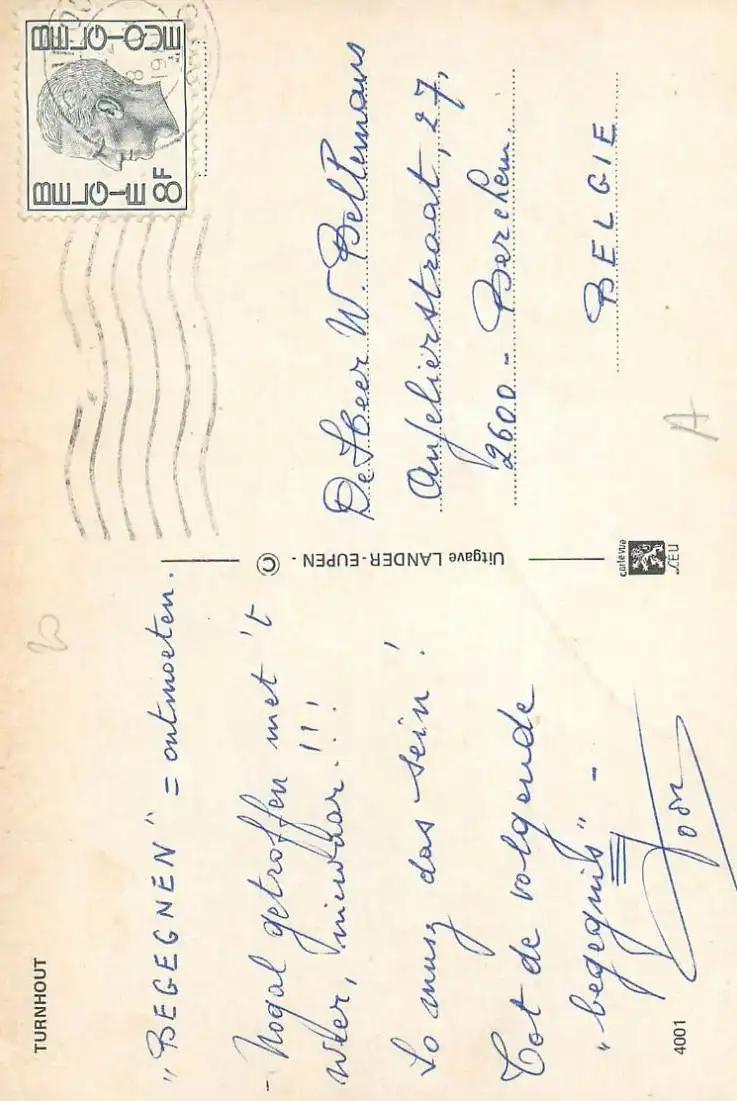 TURNHOUT
„BEGEGNEN" = ontmoeten.
- Nogal getroffen met 't
weer, nietwaar!!!
So musz das sein!
Tot de volgende
„begegnis" -
4001
Uitgave LANDER-EUPEN - ©
carte vue
LEU
BELGIQUE
BELGIE 8F
De Heer W. Beltemans
Anjelierstraat, 27,
2600 - Berchem.
BELGIE
A